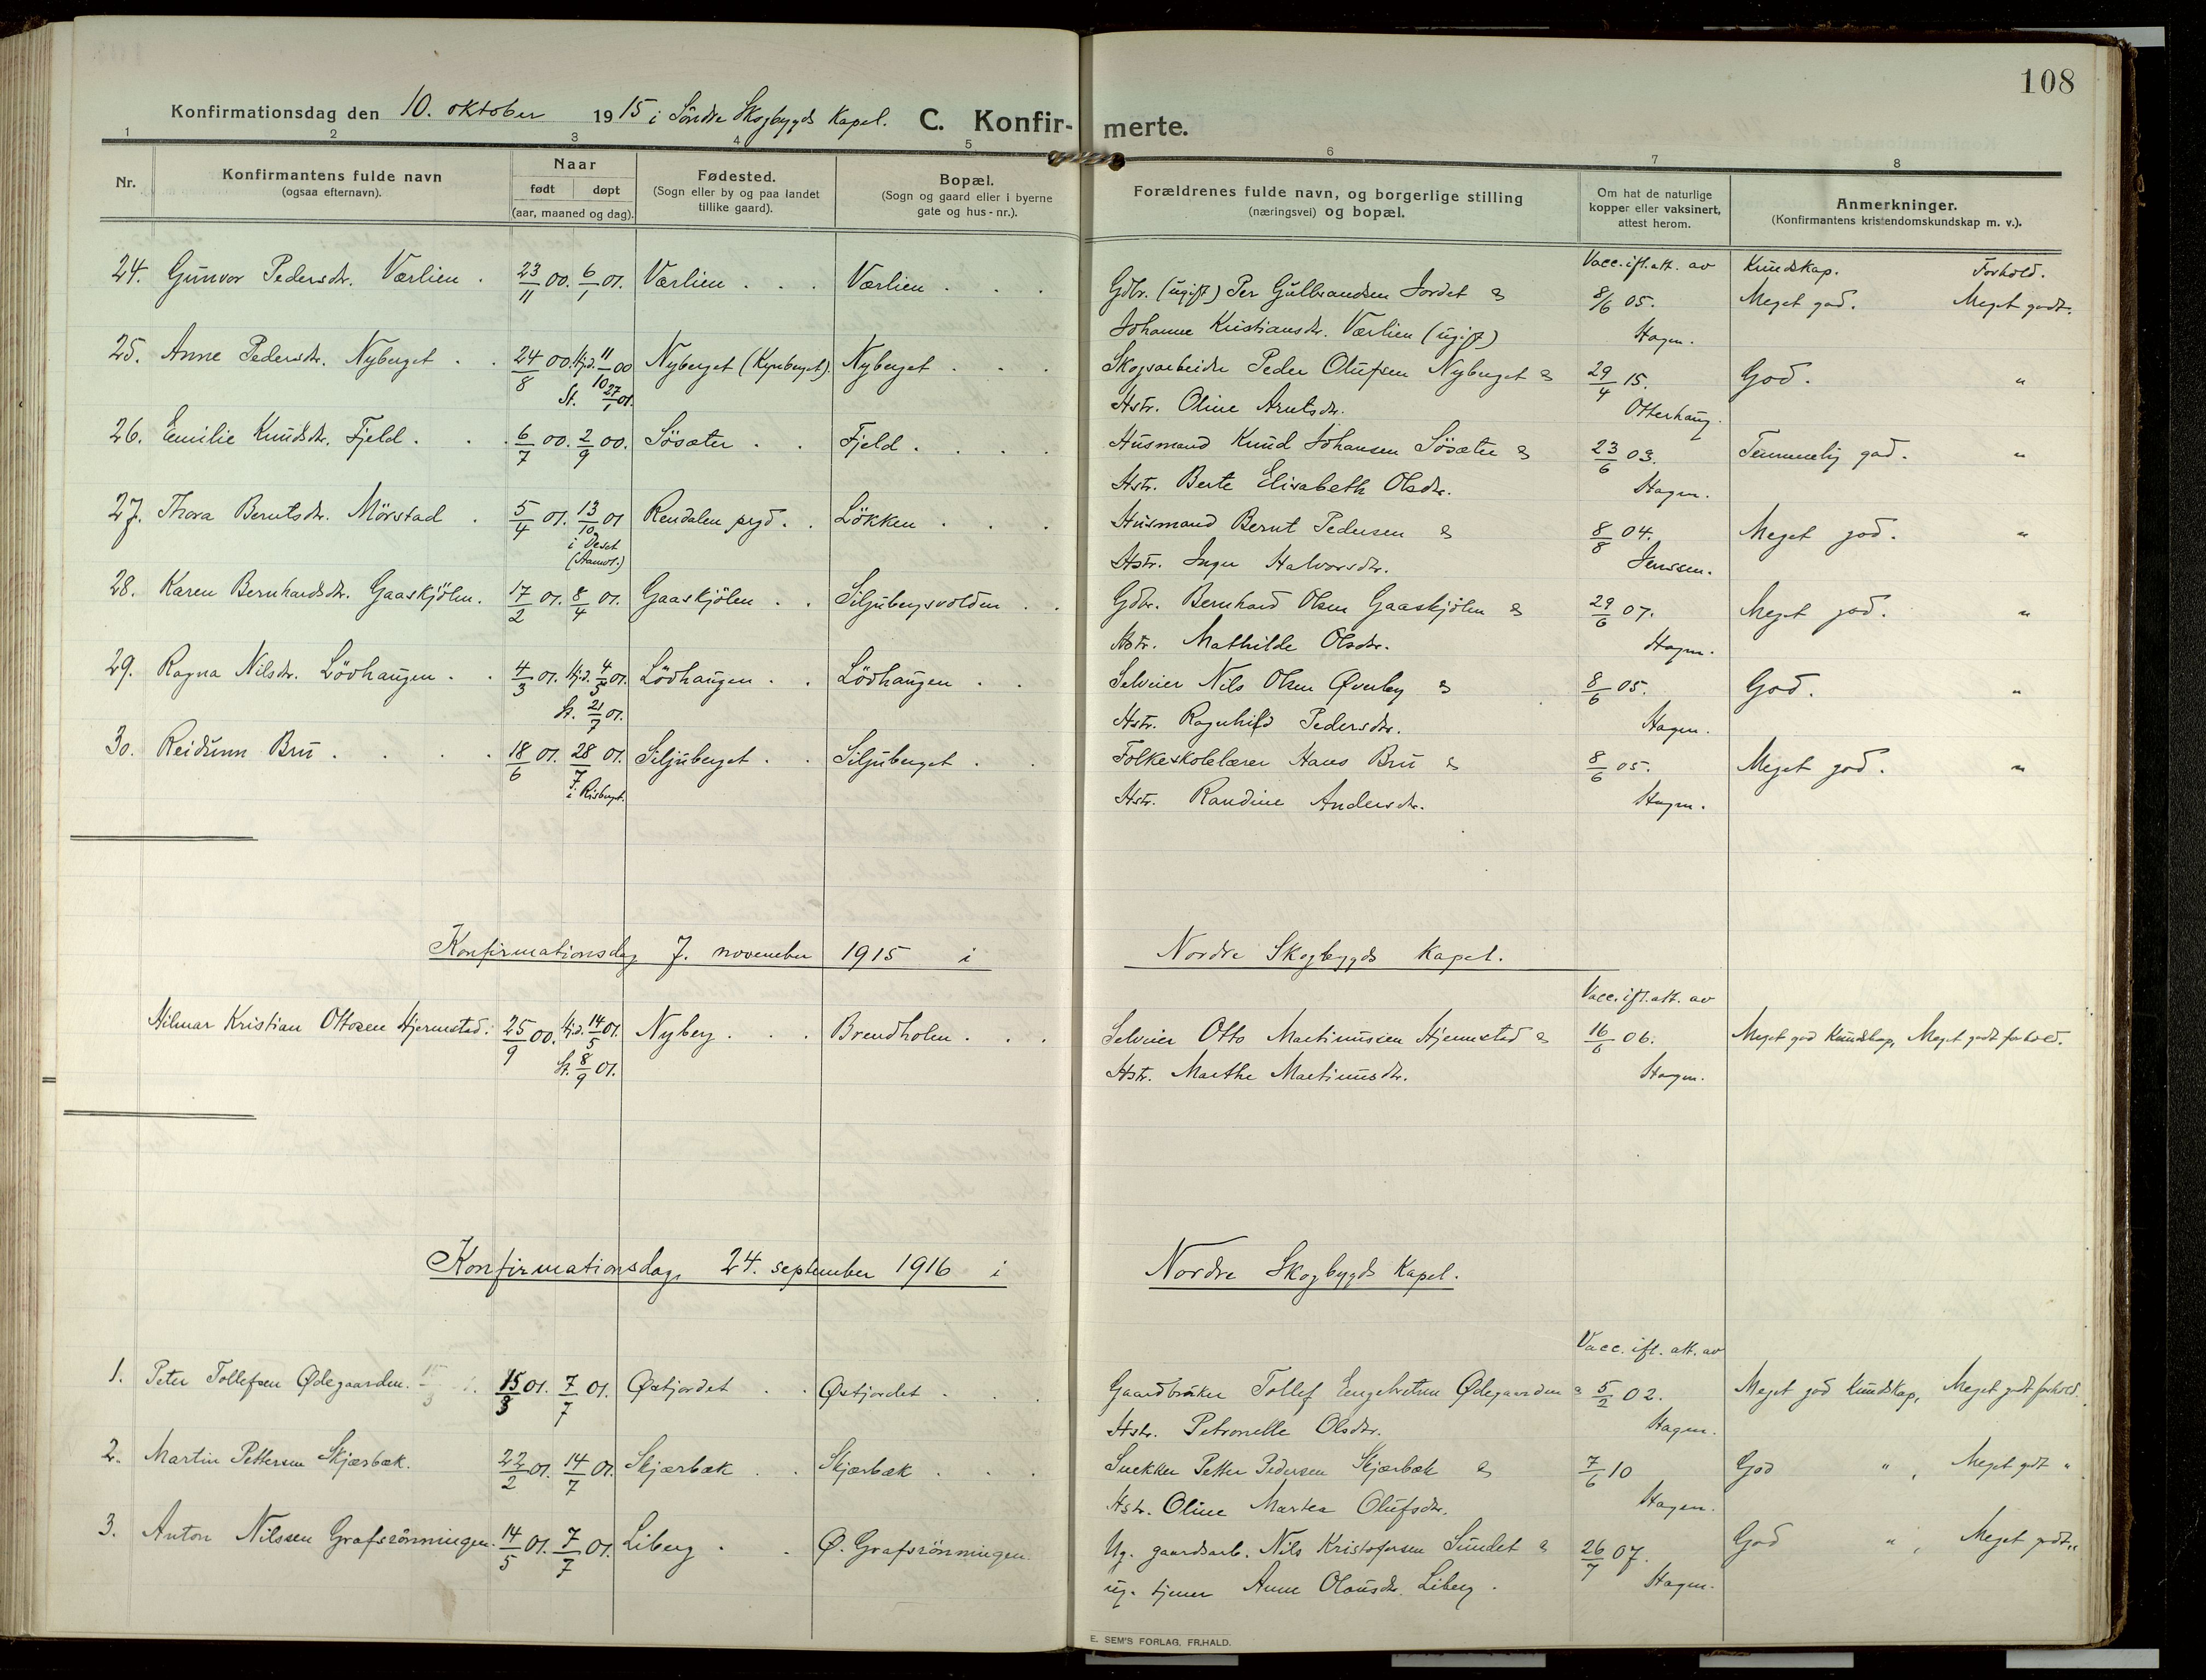 108
Konfirmationsdag den 10. oktober 1915 i Søndre Skogbygds Kapel. C. Konfir- merte.
1 2 3 4 5 6 7 8
Nr. Konfirmantens fulde navn (ogsaa efternavn). Naar født døpt (aar, maaned og dag). Fødested. (Sogn eller by og paa landet tillike gaard). Bopæl. (Sogn og gaard eller i byerne gate og hus-nr.). Forældrenes fulde navn, og borgerlige stilling (næringsvei) og bopæl. Om hat de naturlige kopper eller vaksinert, attest herom. Anmerkninger. (Konfirmantens kristendomskundskap m. v.).
Vacc. ifl. att. av Kundskap. Forhold.
24. Gunvor Pedersdtr. Værlien. 23/11 00. 6/1 01. Værlien . . . Værlien . . . Gdbr. (ugift) Per Gulbrandsen Jordet & 8/6 05. Meget god. Meget godt.
Johanne Kristiansdtr. Værlien (ugift) Hagen.
25. Anne Pedersdtr. Nyberget . . 24/8 00. Hjd. 11/10 00 Nyberget (Kynberget). Nyberget . . . Skogsarbeider Peder Olufsen Nyberget & 29/4 15. God. "
St. 27/1 01. Hstr. Oline Arntsdtr. Otterhaug.
26. Emilie Knudsdtr. Fjeld . . . 6/7 00. 2/9 00. Søsæter . . Fjeld . . . . Husmand Knud Johansen Søsæter & 23/6 03. Temmelig god. "
Hstr. Berte Elisabeth Olsdtr. Hagen.
27. Thora Berntsdtr. Mörstad . 5/4 01. 13/10 01 Rendalen prgd. . Lökken . . . Husmand Bernt Pedersen & 8/8 04. Meget god. "
i Deset (Aamot.) Hstr. Inger Halvorsdtr. Jenssen.
28. Karen Bernhardsdtr. Gaaskjölen. 17/2 01. 8/4 01. Gaaskjölen . . Siljubergsvolden . . Gdbr. Bernhard Olsen Gaaskjölen & 29/6 07. Meget god. "
Hstr. Mathilde Olsdtr. Hagen.
29. Ragna Nilsdtr. Lövhaugen . . 4/3 01. Hjd. 4/5 01. Lövhaugen . . Lövhaugen . . Selveier Nils Olsen Øverby & 8/6 05. God. "
St. 21/7 01. Hstr. Ragnhild Pedersdtr. Hagen.
30. Reidunn Bru . . . . 18/6 01. 28/7 01. Siljuberget . . Siljuberget . . Folkeskolelærer Hans Bru & 8/6 05. Meget god. "
i Risberget. Hstr. Randine Andersdtr. Hagen.
Konfirmationsdag 7. november 1915 i Nordre Skogbygds Kapel.
Vacc. ifl. att. av
Hilmar Kristian Ottosen Hjernstad. 25/9 00. Hjd. 14/5 01. Nyberg . . . Brendholen . . . Selveier Otto Martinussen Hjernstad & 16/6 06. Meget god Kundskap, Meget godt forhold.
St. 8/9 01. Hstr. Marthe Martinusdtr. Hagen.
Konfirmationsdag 24. september 1916 i Nordre Skogbygds Kapel.
Vacc. ifl. att. av
1. Peter Tollefsen Ødegaarden. 15/3 01. 7/7 01. Østjordet . . Østjordet . . . Gaardbruker Tollef Engebretsen Ødegaarden & 5/2 02. Meget god Kundskap, Meget godt forhold.
Hstr. Petronelle Olsdtr. Hagen.
2. Martin Pettersen Skjærbæk. 22/2 01. 14/7 01. Skjærbæk . . Skjærbæk . . . Snekker Petter Pedersen Skjærbæk & 7/6 10 God " , Meget godt "
Hstr. Oline Martea Olufsdtr. Hagen.
3. Anton Nilssen Grafsrönningen. 14/5 01. 7/7 01. Liberg . . Ø. Grafsrönningen. Ug. gaardsarb. Nils Kristofersen Sundet & 26/7 07. God " , Meget godt "
ug. tjener Anne Olausdtr. Liberg. Hagen.
E. SEM'S FORLAG, FR.HALD.